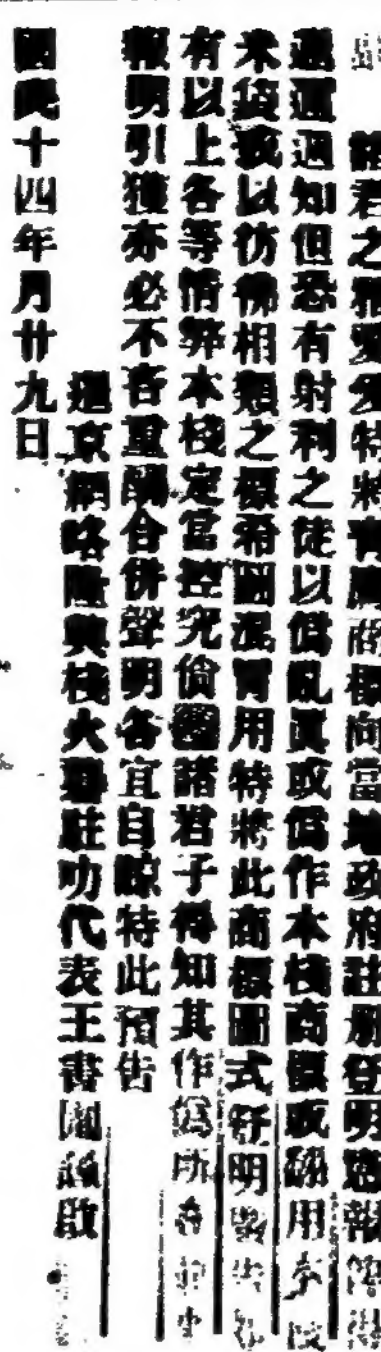 諸君之雅愛爰特將青鷹商標向當地政府註册登明憲報俾
遐邇週知但恐有射利之徒以僞亂眞或僞作本棧商標或竊用本
米袋或以彷彿相類之標希圖混冒用特將此商標圖式登明
有以上各等情弊本棧定當控究倘諸君子得知其作僞所在
報明引獲亦必不吝重酬合併聲明各宜自諒特此預告
暹京網略隆興棧火礱駐叻代表王書 謹啟
國民十四年月廿九日